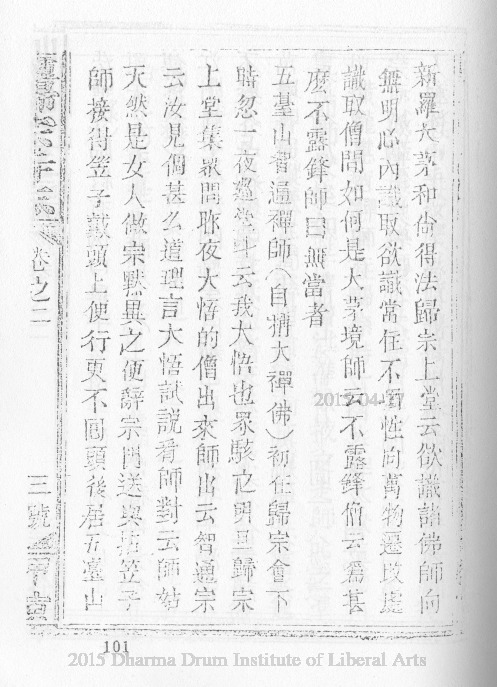 新羅大茅和尙得法歸宗上堂云欲識諸佛師向
無明心內識取欲識常住不凋性向萬物遷改處
識取僧問如何是大茅境師云不露鋒僧云爲甚
麼不露鋒師曰無當者
五臺山智通禪師(自稱大禪佛)初在歸宗會下
時忽一夜連叫云我大悟也眾駭之明旦歸宗
上堂集眾問昨夜大悟的僧出來師出云智通宗
云汝見個甚么道理言大悟試說看師對云師姑
天然是女人做宗默異之便辭宗門送與拈笠子
師接得笠子戴頭上便行更不回頭後居五臺山
卷之二
三號
101
2015-04-17
2015 Dharma Drum Institute of Liberal Arts